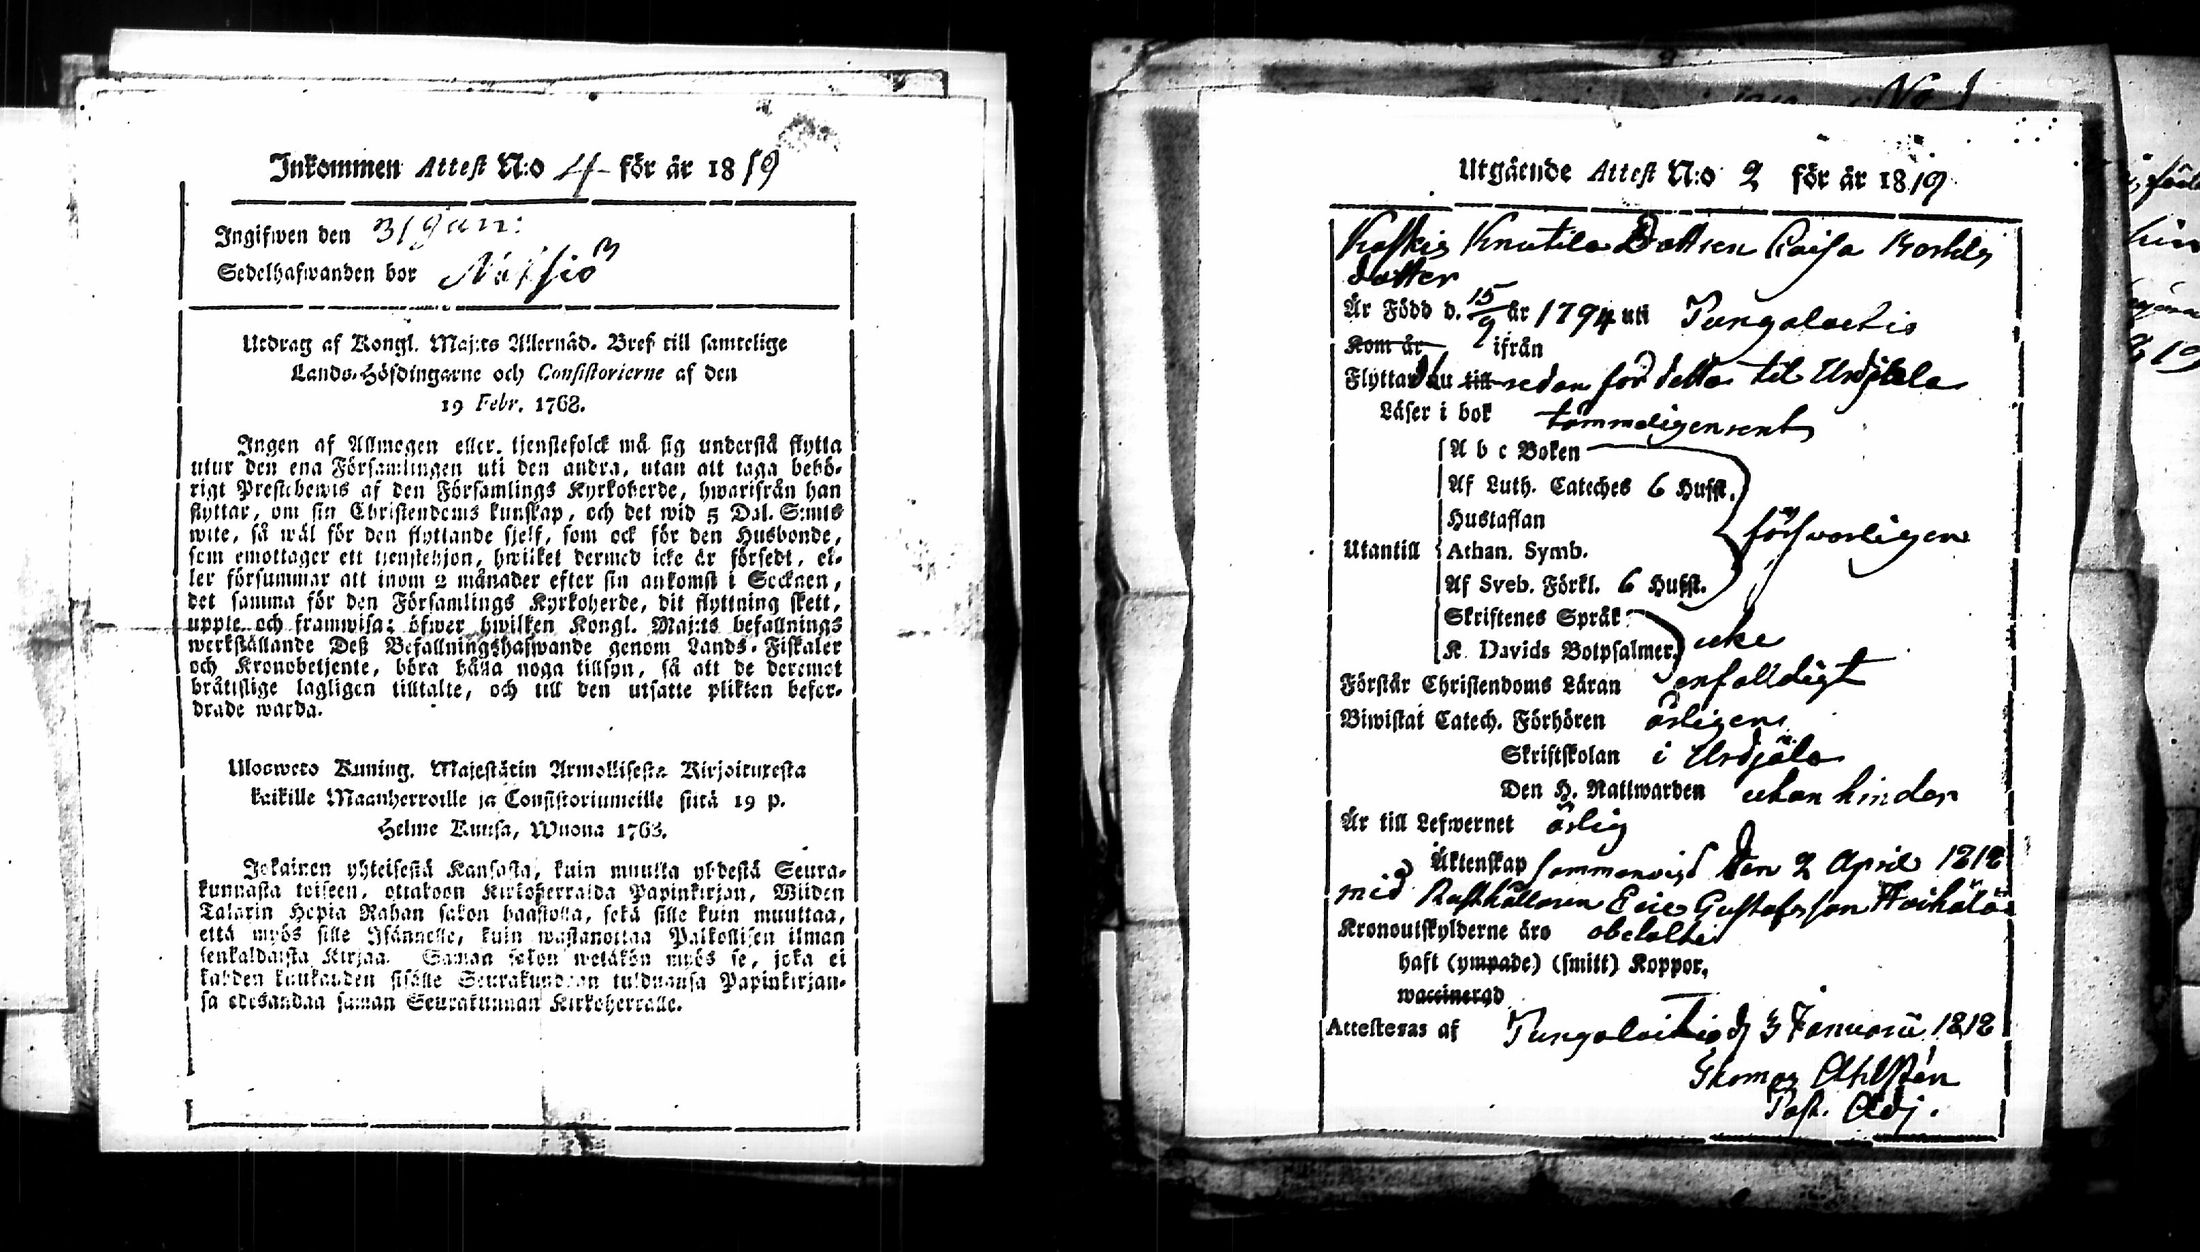 Inkommen Attest N:o 4 för år 1819
Ingifwen den 31 Jan:
Sedelhafwanden bor
Utdrag af Kongl. Maj:ts Allernåd. Bref till samtelige
Lands-Höfdingarne och Consistorierne af den
19 Febr. 1768.
Ingen af Allmogen eller tjenstefolck må sig understå flytta
utur den ena Församlingen uti den andra, utan att taga behö-
rigt Prestebewis af den Församlings Kyrkoherde, hwarifrån han
flyttar, om sin Christendoms kunskap, och det wid 5 Dal. S:mts
wite, så wäl för den flyttande sjelf, som ock för den Husbonde,
som emottager ett tjenstehjon, hwilket dermed icke är försedt, el-
ler försummar att inom 2 månader efter sin ankomst i Socknen,
det samma för den Församlings Kyrkoherde, dit flyttning skett,
uppte och framwisa; öfwer hwilken Kongl. Maj:ts befallnings
werkställande Deß Befallningshafwande genom Lands-Fiskaler
och Kronobetjente, böra hålla noga tillsyn, så att de deremot
bråttslige lagligen tilltalte, och till den utsatte plikten befor-
drade warda.
Ulosweto Kuning. Majestätin Armollisesta Kirjoituxesta
kaikille Maanherroille ja Consistoriumeille siitä 19 p.
Helme Kuusa, Wuona 1768.
Jokainen yhteisestä Kansasta, kuin muutta yhdestä Seura-
kunnasta toiseen, ottakoon Kirkoherralda Papinkirjan, Wiiden
Talarin Hopia Rahan sakon haastolla, sekä sille kuin muuttaa,
että myös sille Isännelle, kuin wastanottaa Palkollisen ilman
senkaldaista Kirjaa. Saman sakon wetäkön myös se, joka ei
kahden kuukauden sisälle Seurakundaan tulduansa Papinkirjan-
sa edesandaa saman Seurakunnan Kirkoherralle.
Utgående Attest N:o 2 för år 1819
Knutila Dottren Caisa
dotter
Är Född d. 15/9 år 1794 uti Pungalaitis
Kom år ifrån
Flyttar nu till sedan för detta til Urdjala
Läser i bok
A b c Boken
Af Luth. Cateches 6 Hufst.
Hustaflan
Utantill Athan. Symb. försvarligen
Af Sveb. Förkl. 6 Hufst.
Skriftenes Språk
K. Davids Botpsalmer. icke
Förstår Christendoms Läran enfaldigt
Biwistat Catech. Förhören årligen
Skriftskolan i Urdjala
Den H. Nattwarden utan hinder
Är till Lefwernet ärlig
Äktenskap sammanvigd den 2 April 1818
med Rusthållaren Eric Gustafsson
Kronoutskylderne äro obetalte
haft (ympade) (smitt) Koppor,
waccinerad
Attesteras af Pungalaitis d 3 Januarii 1818
Thomas Ahlstén
Past. Adj.